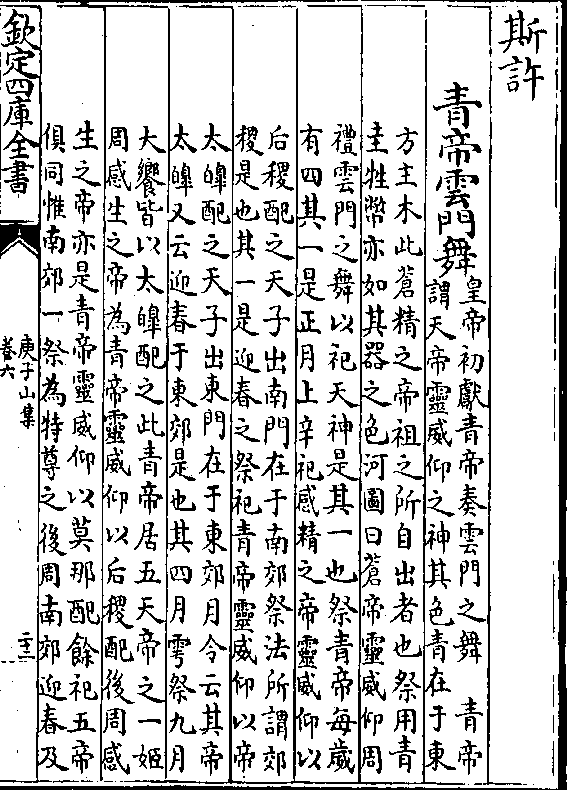 斯許
青帝雲門舞
皇帝初獻青帝奏雲門之舞　青帝
謂天帝靈威仰之神其色青在于東
方主木此蒼精之帝祖之所自出者也祭用青
圭牲幣亦如其器之色河圖曰蒼帝靈威仰周
禮雲門之舞以祀天神是其一也祭青帝每歲
有四其一是正月上辛祀感精之帝靈威仰以
后稷配之天子出南門在于南郊祭法所謂郊
稷是也其一是迎春之祭祀青帝靈威仰以帝
太皥配之天子出東門在于東郊月令云其帝
太皥又云迎春于東郊是也其四月雩祭九月
大饗皆以太皥配之此青帝居五天帝之一姬
周感生之帝為青帝靈威仰以后稷配後周感
生之帝亦是青帝靈威仰以莫那配餘祀五帝
俱同惟南郊一祭為特尊之後周南郊迎春及
欽定四庫全書
庾子山集
卷六